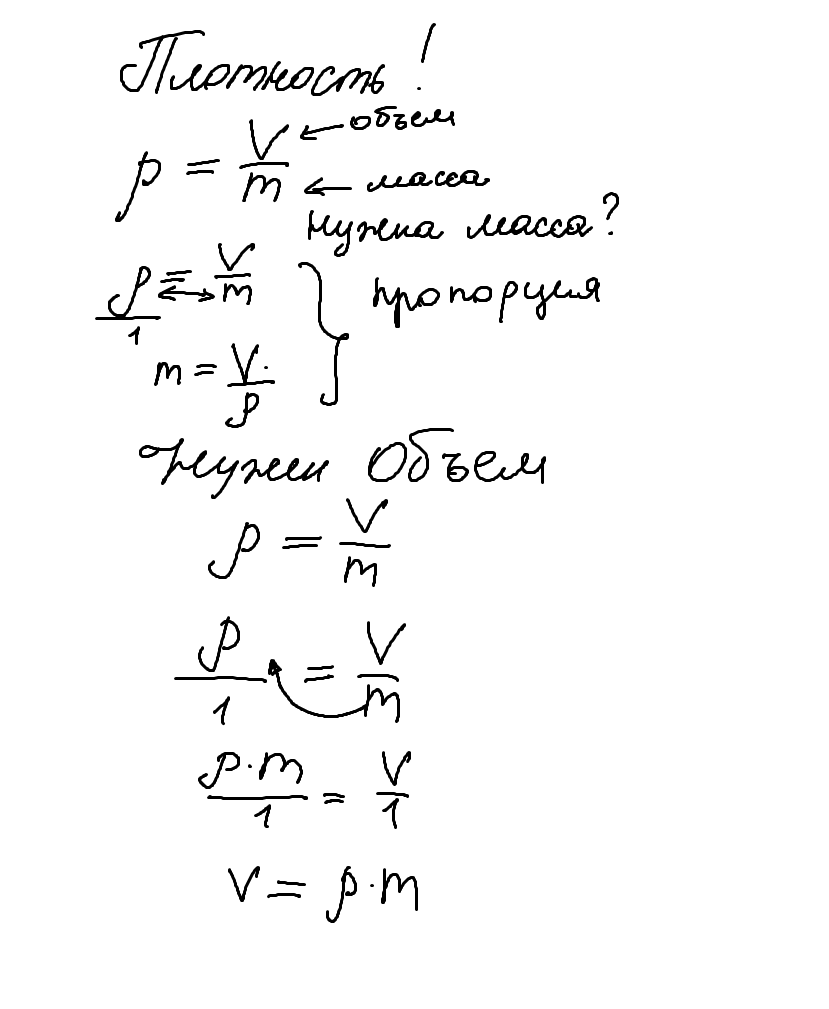 Плотность!
p = V/m ← объем
← масса
Нужна масса?
ρ/1 = V/m } пропорция
m = V/ρ
Нужен Объем
ρ = V/m
ρ/1 = V/m
ρ·m/1 = V/1
V = ρ·m